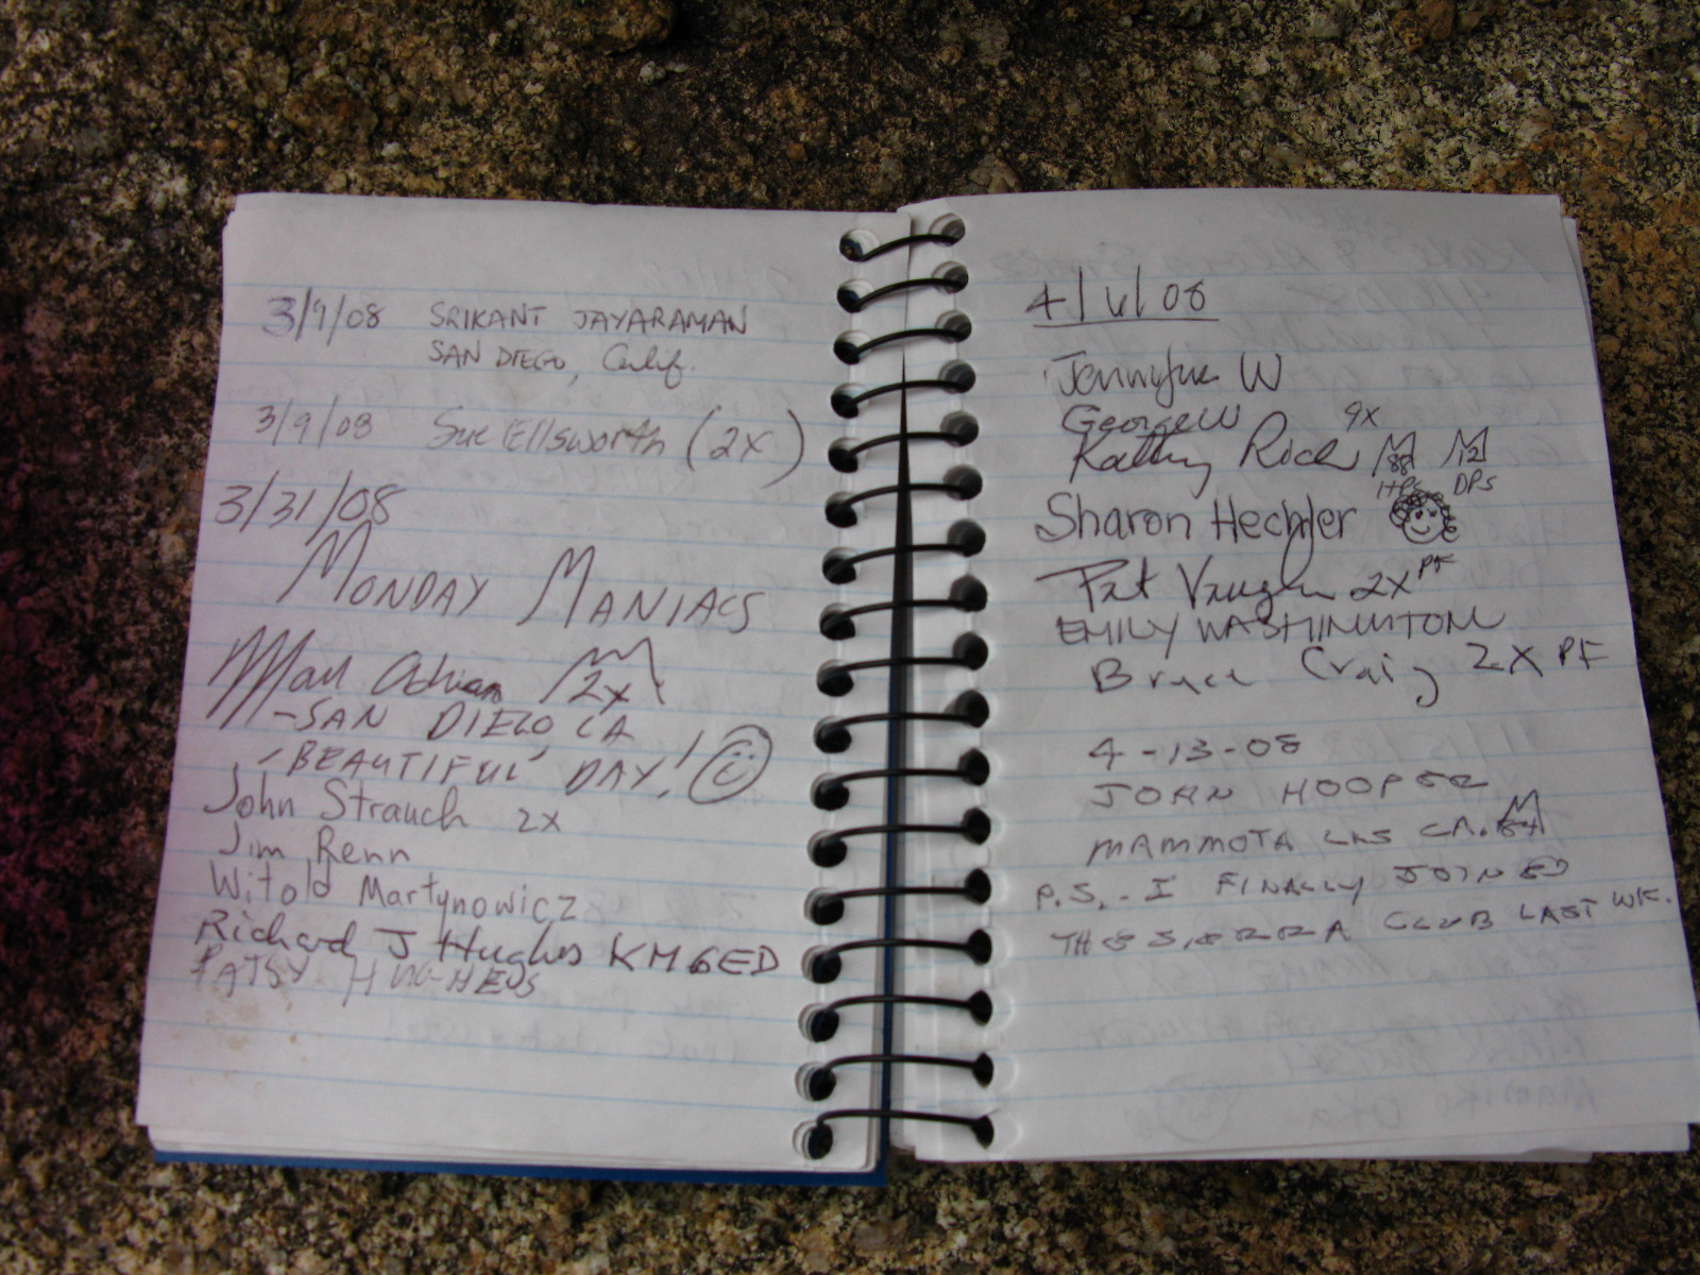 3/9/08 SRIKANT JAYARAMAN
SAN DIEGO, Calif.
3/9/08 Sue Ellsworth (2x)
3/31/08
MONDAY MANIACS
2x
-SAN DIEGO CA
-BEAUTIFUL DAY!
John Strauch 2x
Jim Renn
Witold Martynowicz
Richard J Hughes KM6ED
PATSY HUGHES
4/6/08
W
George W 9x
Kathy Rich 88 12
HPS DPS
Sharon Hechler
Pat Vaughn 2x PF
EMILY WASHINGTON
Bruce Craig 2X PF
4-13-08
JOHN HOOPER
MAMMOTH LKS CA.
P.S. - I FINALLY JOINED
THE SIERRA CLUB LAST WK.